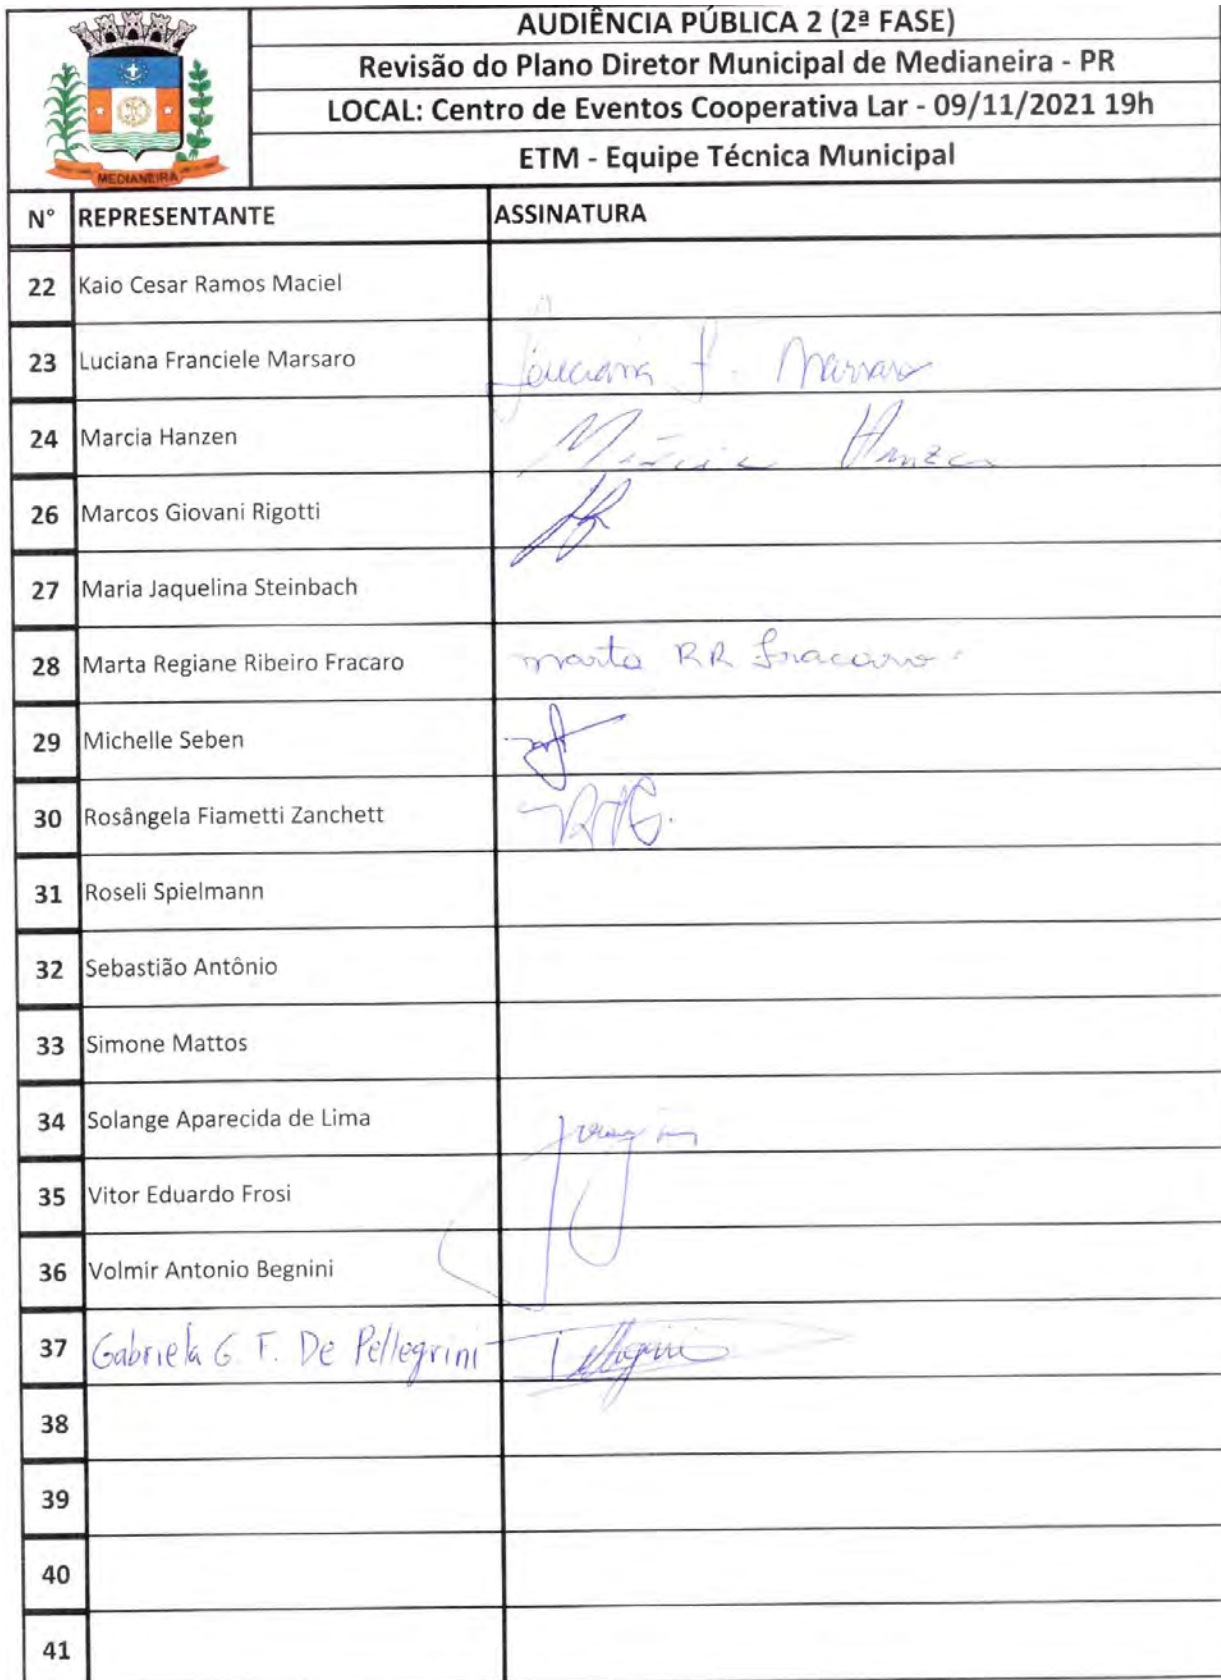 AUDIÊNCIA PÚBLICA 2 (2ª FASE)
Revisão do Plano Diretor Municipal de Medianeira - PR
LOCAL: Centro de Eventos Cooperativa Lar - 09/11/2021 19h
ETM - Equipe Técnica Municipal
MEDIANEIRA
N° REPRESENTANTE ASSINATURA
22 Kaio Cesar Ramos Maciel
23 Luciana Franciele Marsaro Luciana F. Marsaro
24 Marcia Hanzen Márcia Hanzen
26 Marcos Giovani Rigotti
27 Maria Jaquelina Steinbach
28 Marta Regiane Ribeiro Fracaro marta RR Fracaro
29 Michelle Seben
30 Rosângela Fiametti Zanchett
31 Roseli Spielmann
32 Sebastião Antônio
33 Simone Mattos
34 Solange Aparecida de Lima
35 Vitor Eduardo Frosi
36 Volmir Antonio Begnini
37 Gabriela G. F. De Pellegrini Pellegrini
38
39
40
41